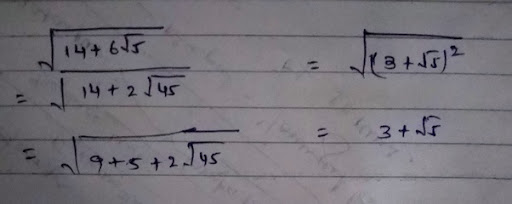 √(14+6√5)
= √(14+2√45)
= √(9+5+2√45)
= √((3+√5)²)
= 3+√5